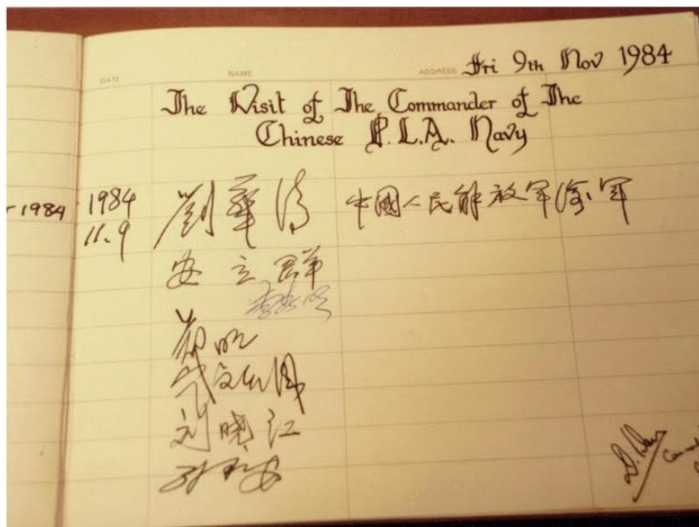 DATE NAME ADDRESS Fri 9th Nov 1984
The Visit of The Commander of The
Chinese P.L.A. Navy
1984
1984 劉華清 中國人民解放军海军
11.9
安立群
郑明
刘晓江